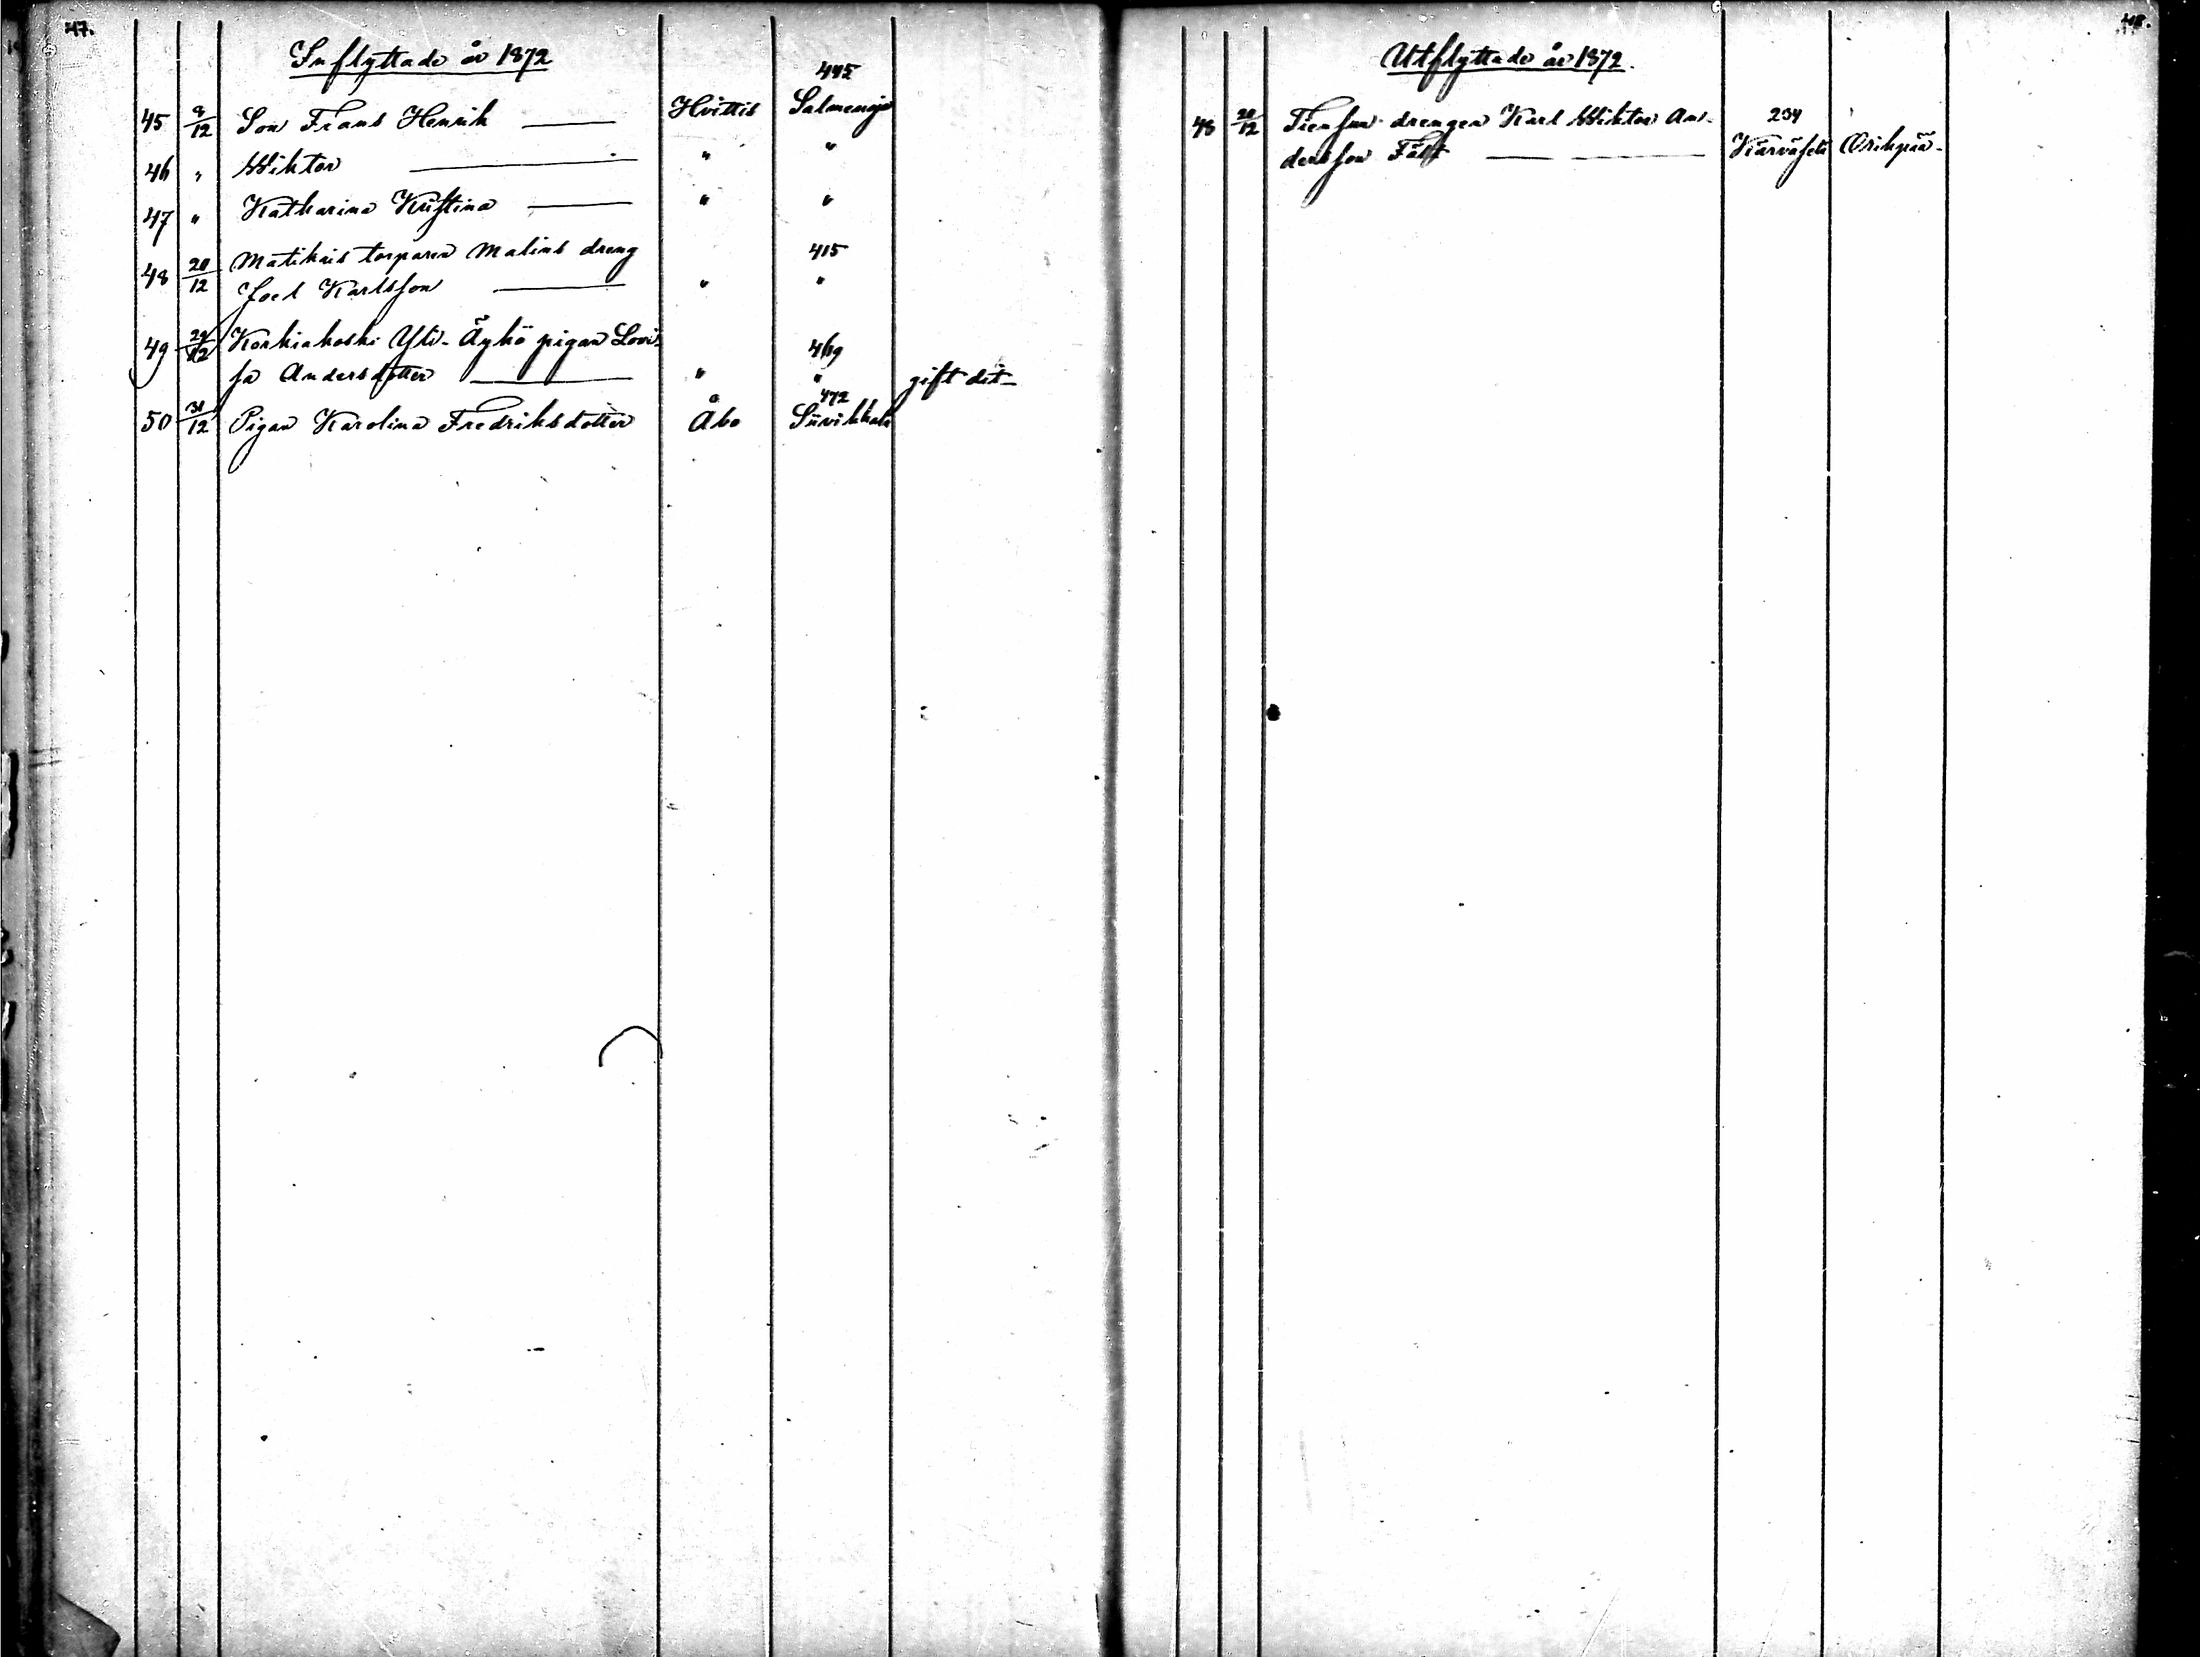 47.
Inflyttade år 1872
445
45 9/12 Son Frans Henrik Hvittis Salmenoja
46 " Wiktor " "
47 " Katharina Kristina " "
48 20/12 Matikais torparen Malins dreng 415
Joel Karlsson " "
49 29/12 Korkiakoski Yli-Äyhö pigan Lovi- 469
sa Andersdotter " " gift dit
472
50 31/12 Pigan Karolina Fredriksdotter Åbo
48.
Utflyttade år 1872.
48 20/12 drengen Karl Wiktor An- 234
dersson Fält Oripää